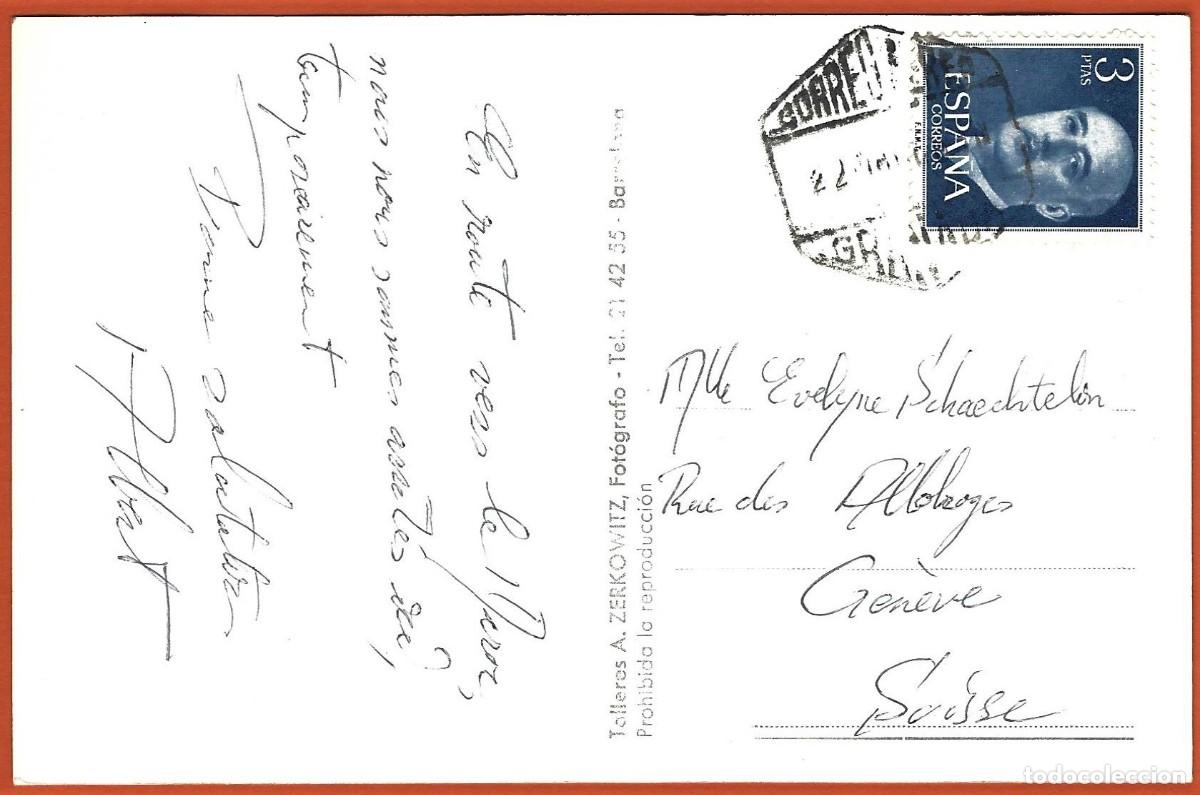 En route vers le Maroc,
nous nous sommes arrêtés ici,
temporairement
Bonne salutation
Albert
Talleres A. ZERKOWITZ, Fotógrafo - Tel. 21 42 55 - Barcelona
Prohibida la reproducción
CORREO
27
3
PTAS
ESPAÑA
CORREOS
F.N.M.T.
Mlle Evelyne Schaechtelin
Rue des Allobroges
Genève
Suisse
todocoleccion